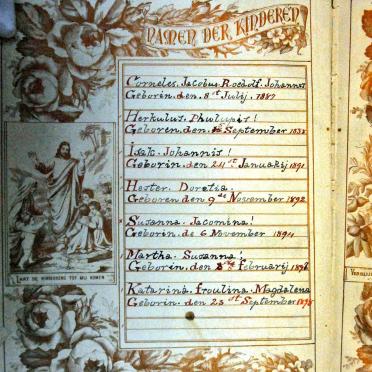 NAMEN DER KINDEREN
Corneles. Jacobus. Roedolf. Johannes
Geborin. den. 8st Julij. 1887
Herkulus. Phulippis!
Geboren. den. September 1888
Isak. Johannis!
Geborin. de 24st Januarij 1891
Hester. Doretia.
Geboren den 9de November 1892
Susanna. Jacomina!
Geborin. de 6 November 1894
Martha. Susanna;
Geborin. de Februarij 1896
Katarina. Froulina. Magdalena
Geborin. den 23st September
LAAT DE KINDERKENS TOT MIJ KOMEN